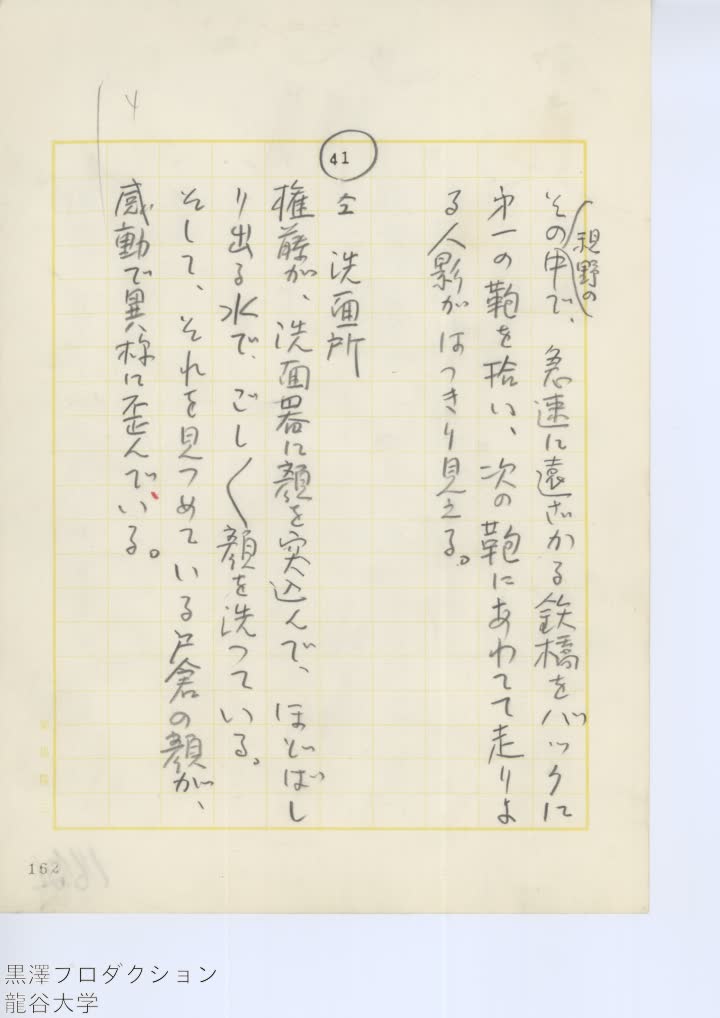 視野の
その中で、急速に遠ざかる鉄橋をバックに
第一の鞄を拾い、次の鞄にあわてて走りよ
る人影がはっきり見える。
41
仝 洗面所
権藤が、洗面器に顔を突込んで、ほどばし
り出る水で、ごし〱顔を洗っている。
そして、それを見つめている戸倉の顔が、
感動で異様に歪んでいる。
162
黒澤プロダクション
龍谷大学